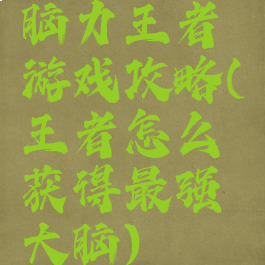 脑力王者
游戏攻略(
王者怎么
获得最强
大脑)